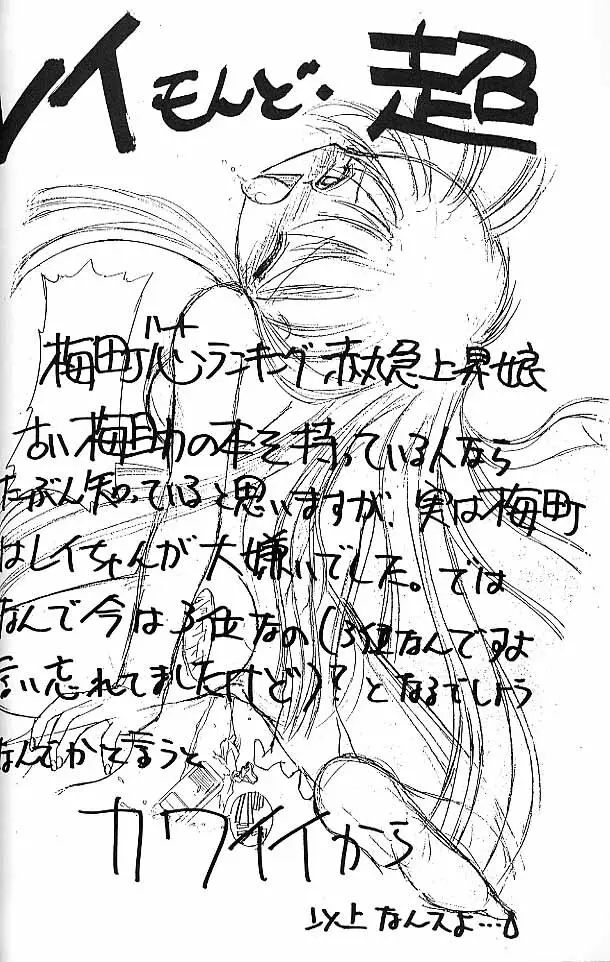 イもんど・超
ハート
梅町心ランキング赤丸急上昇娘
古い梅町の本を持っている人なら
たぶん知っていると思いますが、実は梅町
はレイちゃんが大嫌いでした。では
なんで今は3位なの(3位なんですよ
言い忘れてましたけど)?となるでしょう
なんでかと言うと
カワイイから
以上なんスよ…。